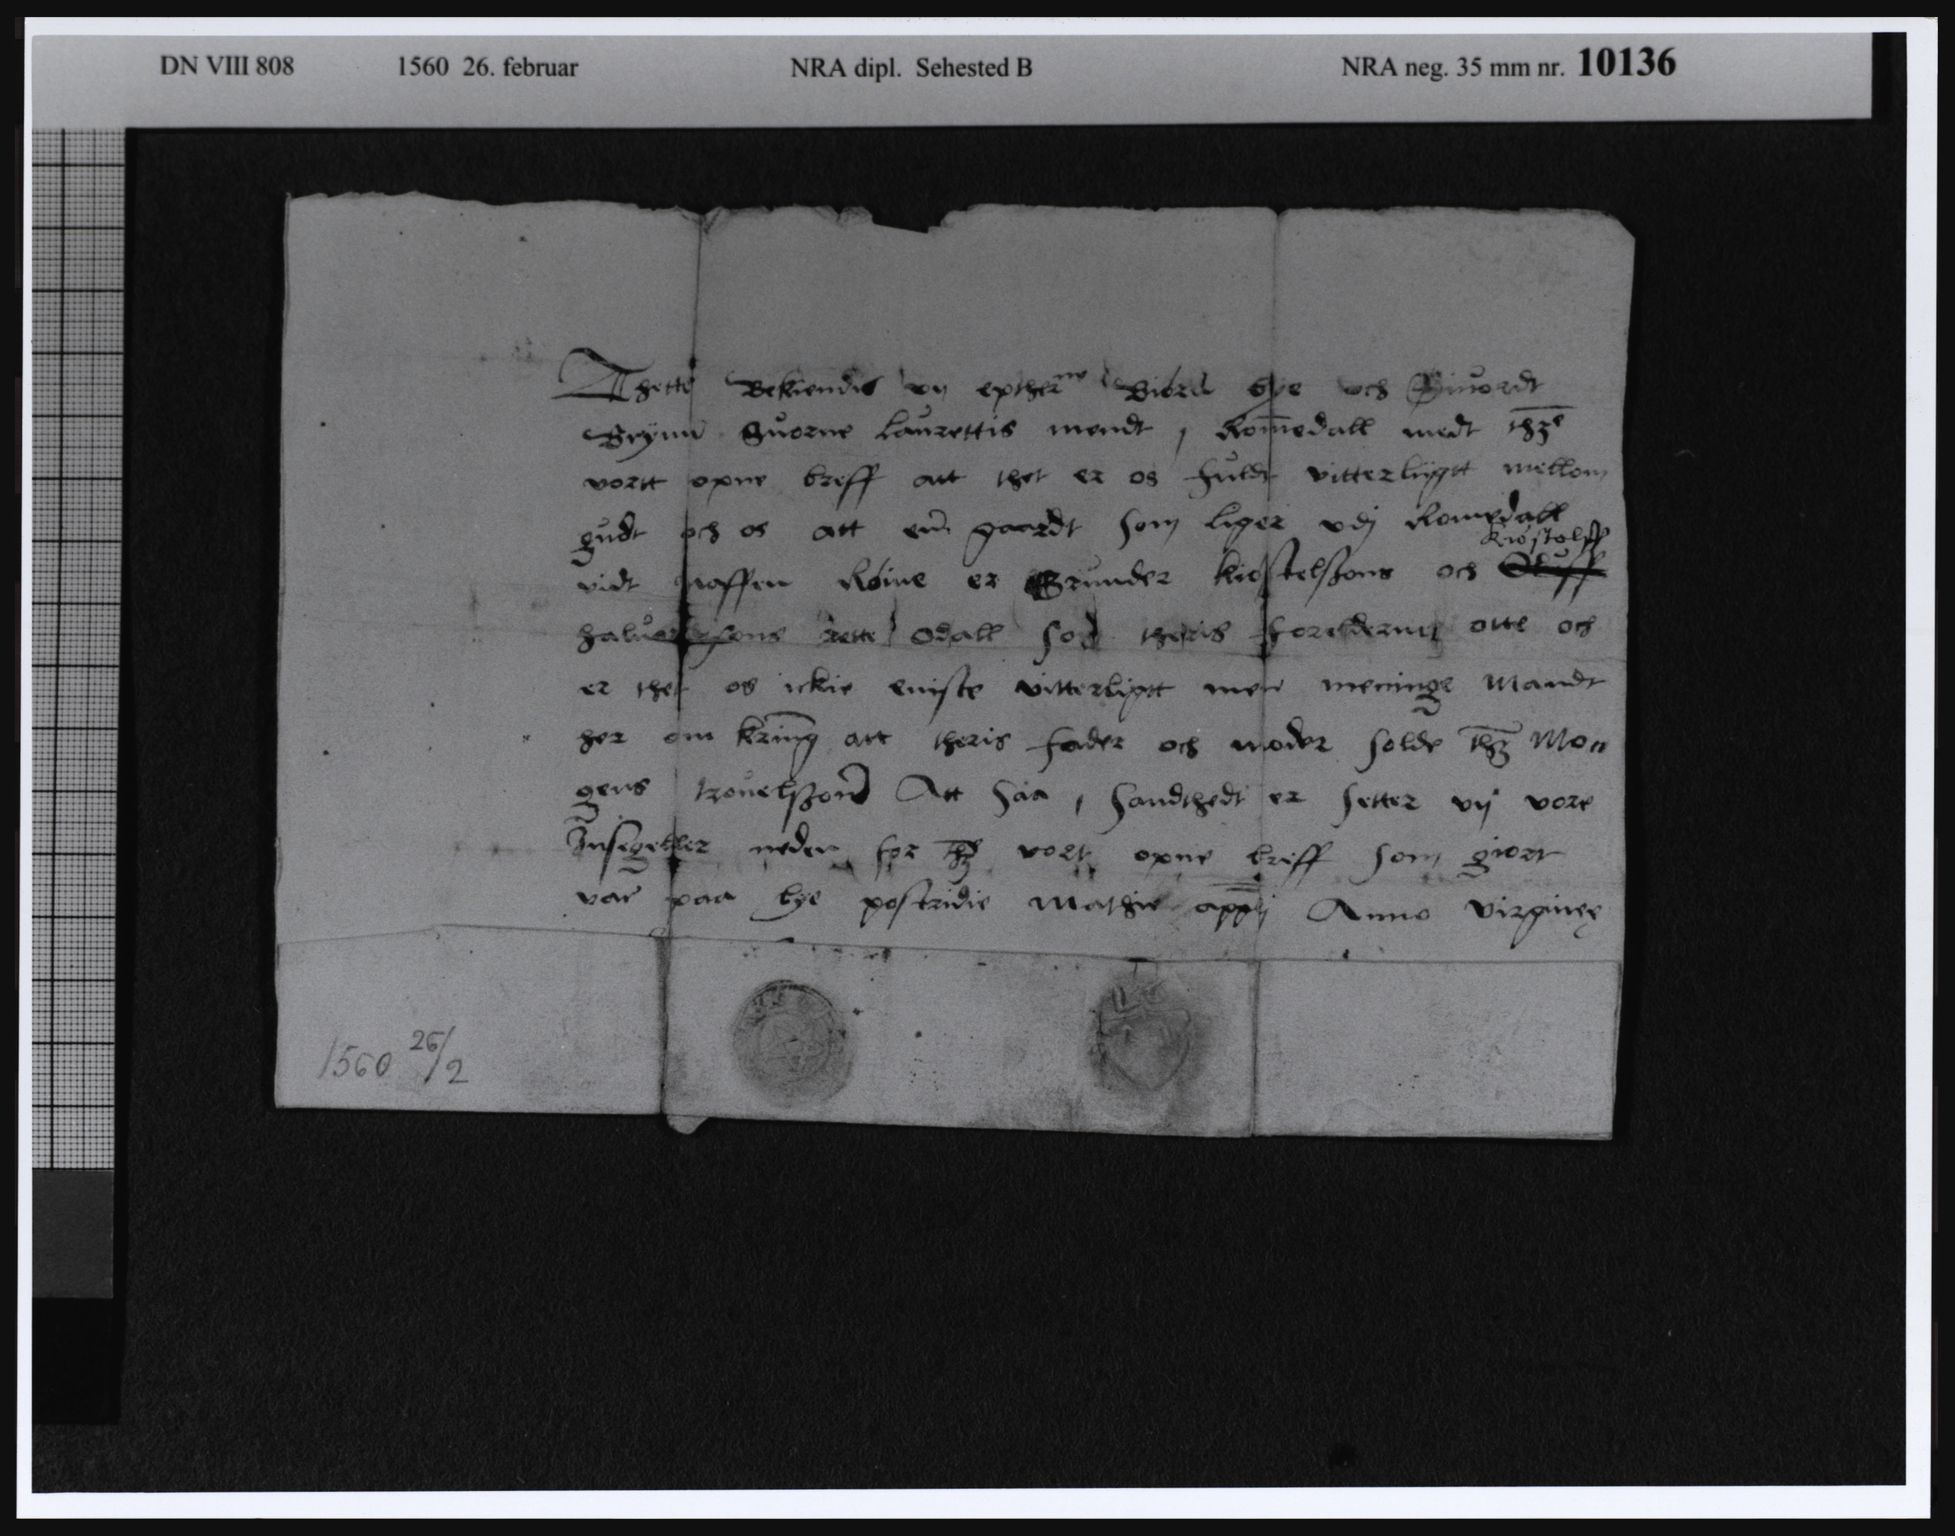 DN VIII 808 1560 26. februar NRA dipl. Sehested B NRA neg. 35 mm nr. 10136
Thette Bekiendis vij epther ne Biørn bye och Siuordt
Brynn Suorne laurettis mendt i Romedall medt
vortt opne breff att thet er os fuldt vitterliigtt mellom
gudt och os att ein gaardt som liger vdj Romedall
kiøstolff
vidt naffen Røine er Grunder kiøstelßøns och Oluff
haluordsøns rette odall som theris foreldernn otte och
er thet os ickie eniste vitterligtt men meninge Mandt
her om kring att theris fader och moder solde Mon
gens trouelßønn Att saa i sandthedt er setter vij vore
Insegeller neden for vort opne breff som giort
var paa bye postridie Mathie appli Anno virgineę
1560 26/2